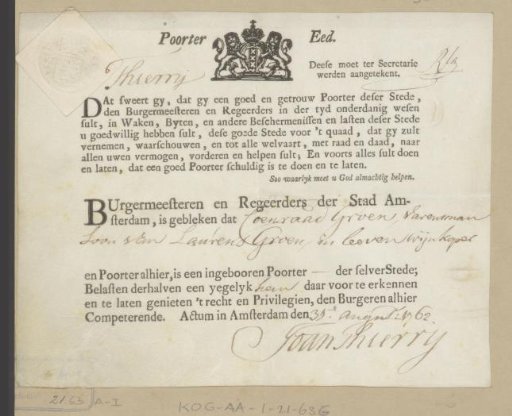 Poorter Eed.
Deese moet ter Secretarie
werden aangetekent.
Thierry
DAt sweert gy, dat gy een goed en getrouw Poorter deser Stede,
den Burgermeesteren en Regeerders in der tyd onderdanig wesen
sult, in Waken, Byten, en andere Beschermenissen en lasten deser Stede
u goedwillig hebben sult, dese goede Stede voor 't quaad, dat gy zult
vernemen, waarschouwen, en tot alle welvaart, met raad en daad, naar
allen uwen vermogen, vorderen en helpen sult; En voorts alles sult doen
en laten, dat een goed Poorter schuldig is te doen en te laten.
Soo waarlyk moet u God almachtig helpen.
BUrgermeesteren en Regeerders der Stad Am-
sterdam, is gebleken dat Coenraad Groen, Varensman
Soon van Laurens Groen, in leeven Wijnkoper
en Poorter alhier, is een ingebooren Poorter der selver Stede;
Belasten derhalven een yegelyk hem daar voor te erkennen
en te laten genieten 't recht en Privilegien, den Burgeren alhier
Competerende. Actum in Amsterdam den 31 augst 1762
Joan Thierry
2163 A-I
KOG-AA-1-21-63G